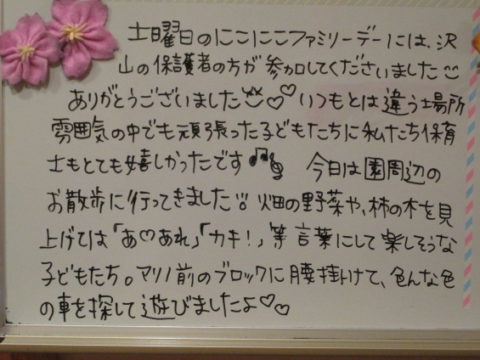 土曜日のにこにこファミリーデーには、沢
山の保護者の方が参加してくださいました
ありがとうございました♡♡いつもとは違う場所
雰囲気の中でも頑張った子どもたちに私たち保育
士もとても嬉しかったです♪ 今日は園周辺の
お散歩に行ってきました!! 畑の野菜や、柿の木を見
上げては「あ♡あれ」「カキ!」等言葉にして楽しそうな
子どもたち。マリノ前のブロックに腰掛けて、色んな色
の車を探して遊びましたよ♡♡